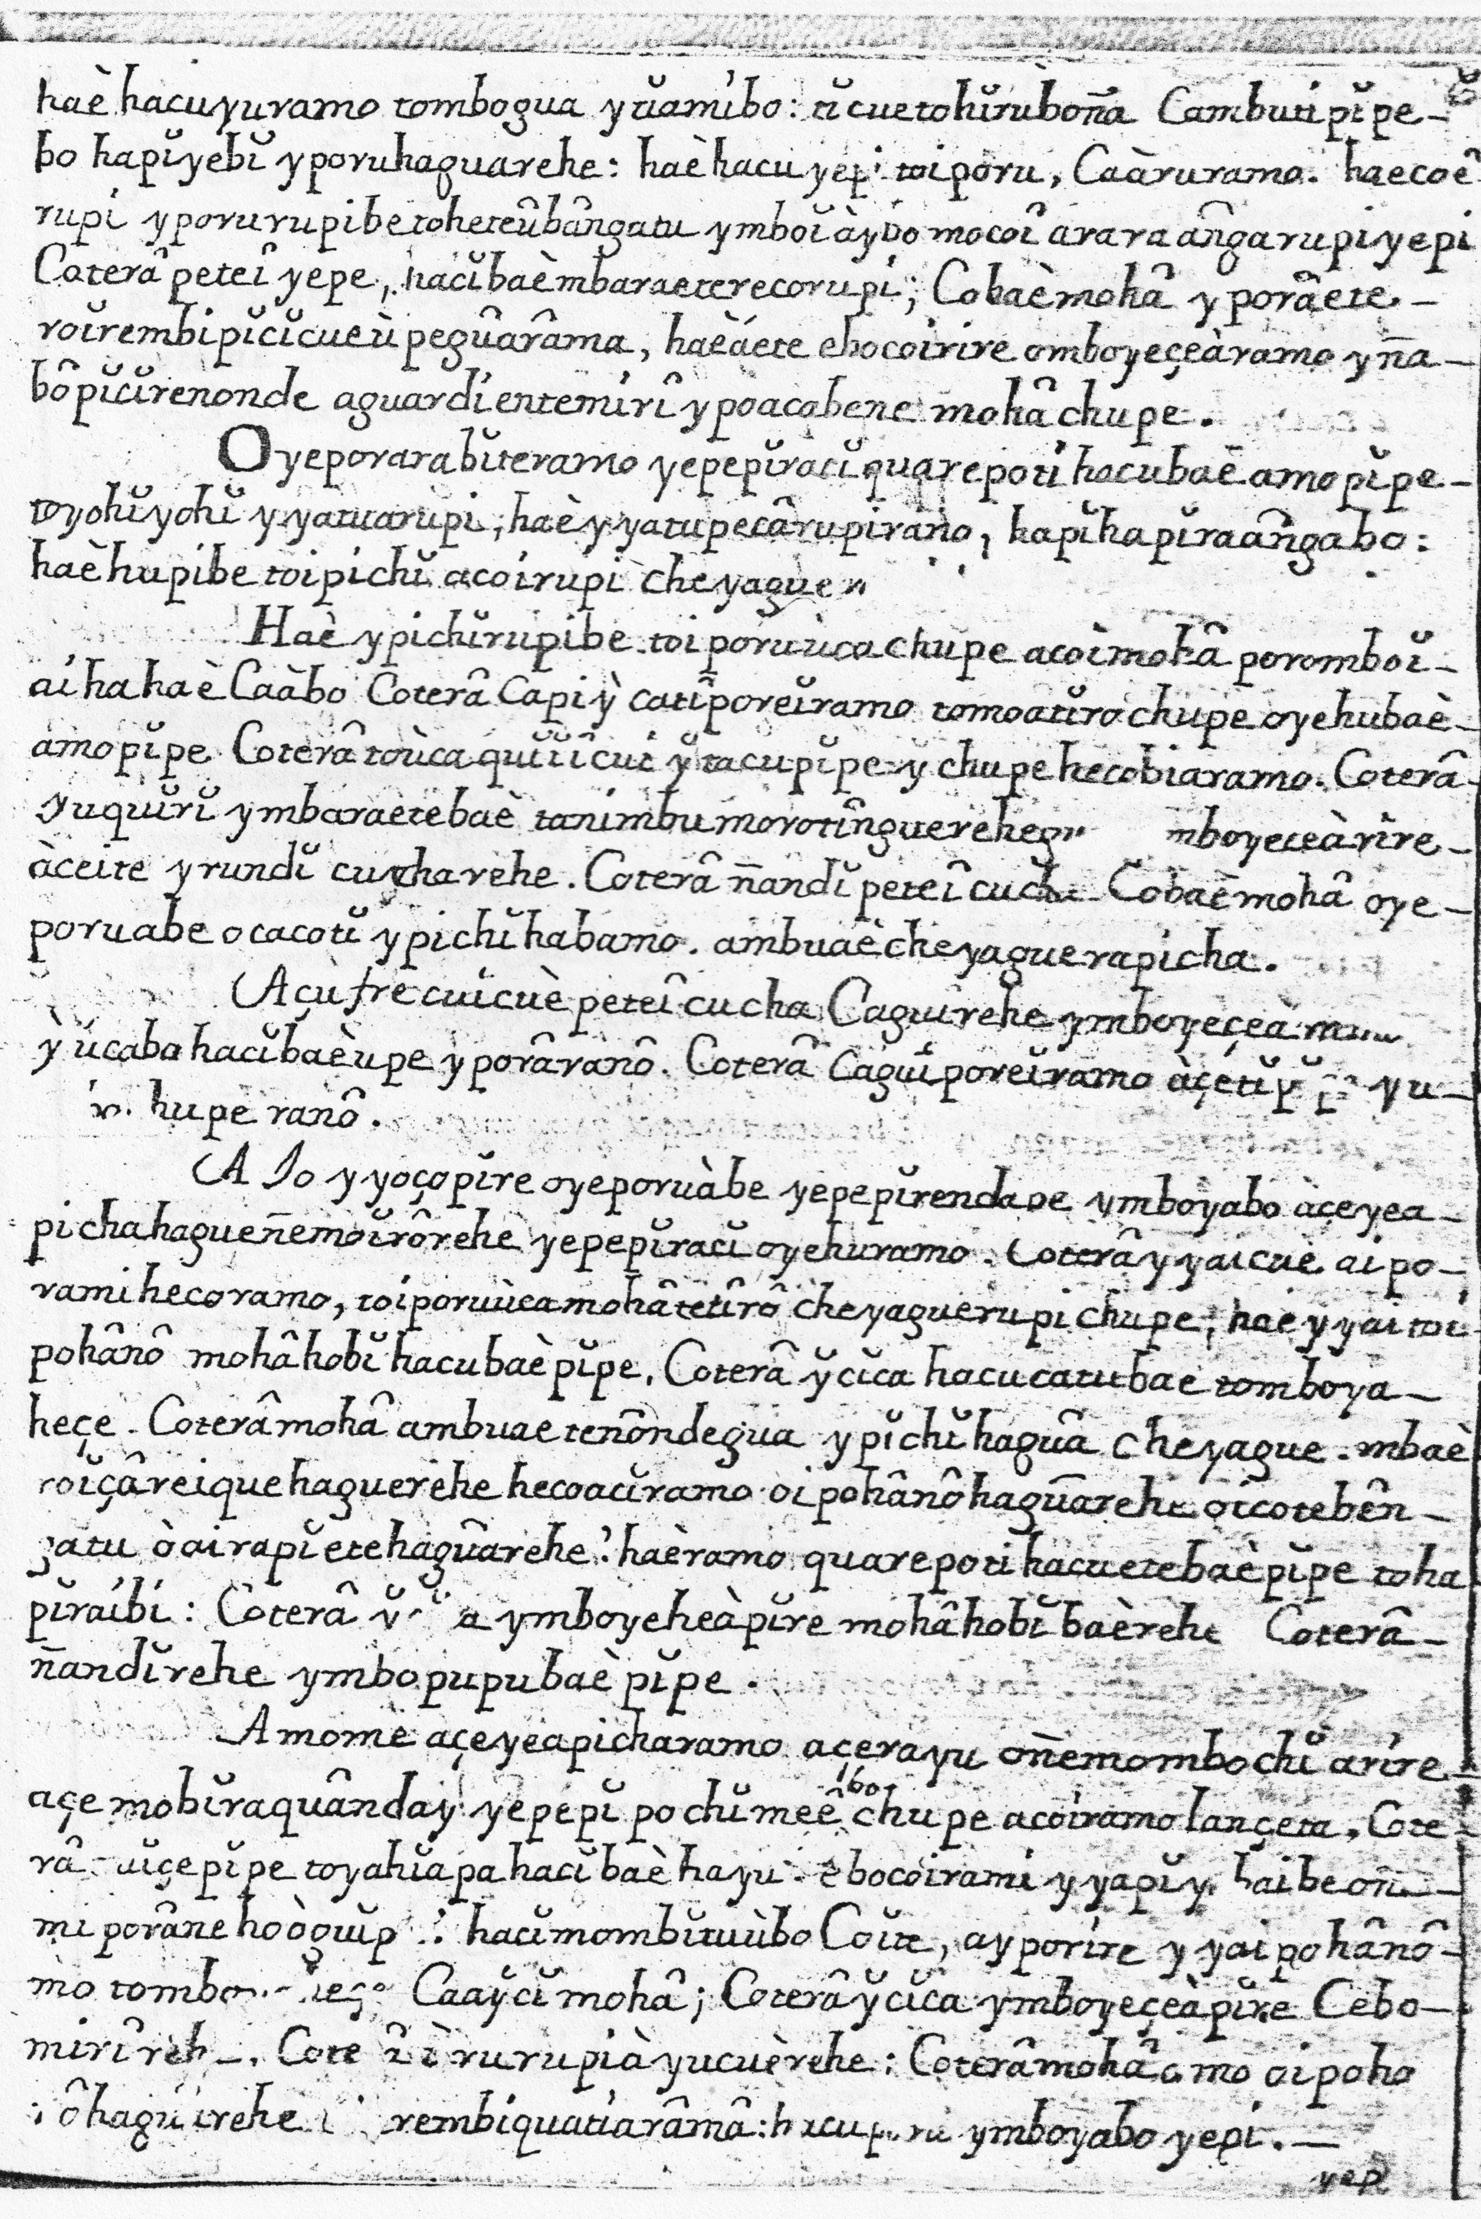 haè hacuyuramo tombogua yŭamíbo: tĭ cue tohĭrŭboña Cambuti pĭpe-
bo hapĭyebĭ yporuhaguarehe: haè hacu yepi toiporu, Caàruramo. haecoê
rupi yporurupibe toheteûbângatu ymboĭàybo mocoî arara ângarupi yepi
Coterâ peteî yepe, hacĭbaè mbaraeterecorupi; Cobaè mohâ yporâete-
roĭrembipĭcĭcueùpeguârâma, haèáete ebocoirire omboyeçeàramo yña-
bô pĭcĭrenonde aguardiente mirî ypoacabene mohâ chupe.
Oyeporarabĭteramo yepepĭracĭ quarepoti hacubaè amo pĭpe-
toyohĭyohĭ yyatuarupi, haè yyatupecârupirano, hapĭhapĭraângabo:
haè hupibe toipichĭ acoirupi cheyague
Haè ypichĭrupibe toiporuùca chupe acoì mohâ poromboĭ-
aíha haè Caàbo Coterâ Capiỳ catî poreĭramo tomoatĭro chupe oyehubaè-
amo pĭpe Coterâ toùca quĭĭî cuí y̆tacu pĭpe y chupe hecobiaramo. Coterâ-
yuquĭrĭ ymbaraetebaè tanimbu morotînguerehe mboyeceàrire-
àceite yrundĭ cucharehe. Coterâ ñandĭ peteî cucha Cobaè mohâ oye-
poruabe ocacotĭ ypichĭhabamo. ambuaè cheyaguerapicha.
Açufre cuícuè peteî cucha Caguĭrehe ymboyeçeà
ỳ ŭcaba hacĭbaèupe yporâranô. Coterâ Caguĭ poreĭramo àçetĭ yu-
hupe ranô.
AJo yyoçopĭre oyeporuàbe yepepĭrendape ymboyabo àçeyea-
pichahagueñemoĭrôrehe yepepĭracĭ oyehuramo. Coterâ yyaicuè aipo-
rami hecoramo, toiporuùca mohâ tetîrô cheyaguerupi chupe; hae yyai toi
pohânô mohâ hobĭ hacubaè pĭpe, Coterâ y̆cĭca hacucatubae tomboya-
heçe. Coterâ mohâ ambuae tenôndegua ypĭchĭhaguâ cheyague. mbaè
roĭçâ reiquehaguerehe hecoacĭramo oipohânôhaguârehe oicotebên-
gatu òairapĭetehaguârehe: haèramo quarepoti hacuetebaè pĭpe toha
pĭraíbí: Coterâ ymboyeheàpĭre mohâ hobĭbaèrehe Coterâ-
ñandĭrehe ymbopupubaè pĭpe.
Amome açeyeapicharamo açerayu oñemombochĭ arire-
açe mobĭraquânday yepepĭ pochĭ meêíbo chupe acoiramo lançeta, Cote
râ pĭpe toyahĭapa hacĭbaè hayu ebocoirami yyapĭy haibe oñ-
mi porâne hoò hacĭmombĭtuùbo Coĭte, ayporire yyai pohânô-
mo Caay̆cĭ mohâ; Coterâ y̆cĭca ymboyeçeàpĭre Cebo-
mirî ìrurupiàyucuèrehe: Coterâ mohâ amo oipoha
rembiquatiarâmâ: ymboyabo yepi.—
yep